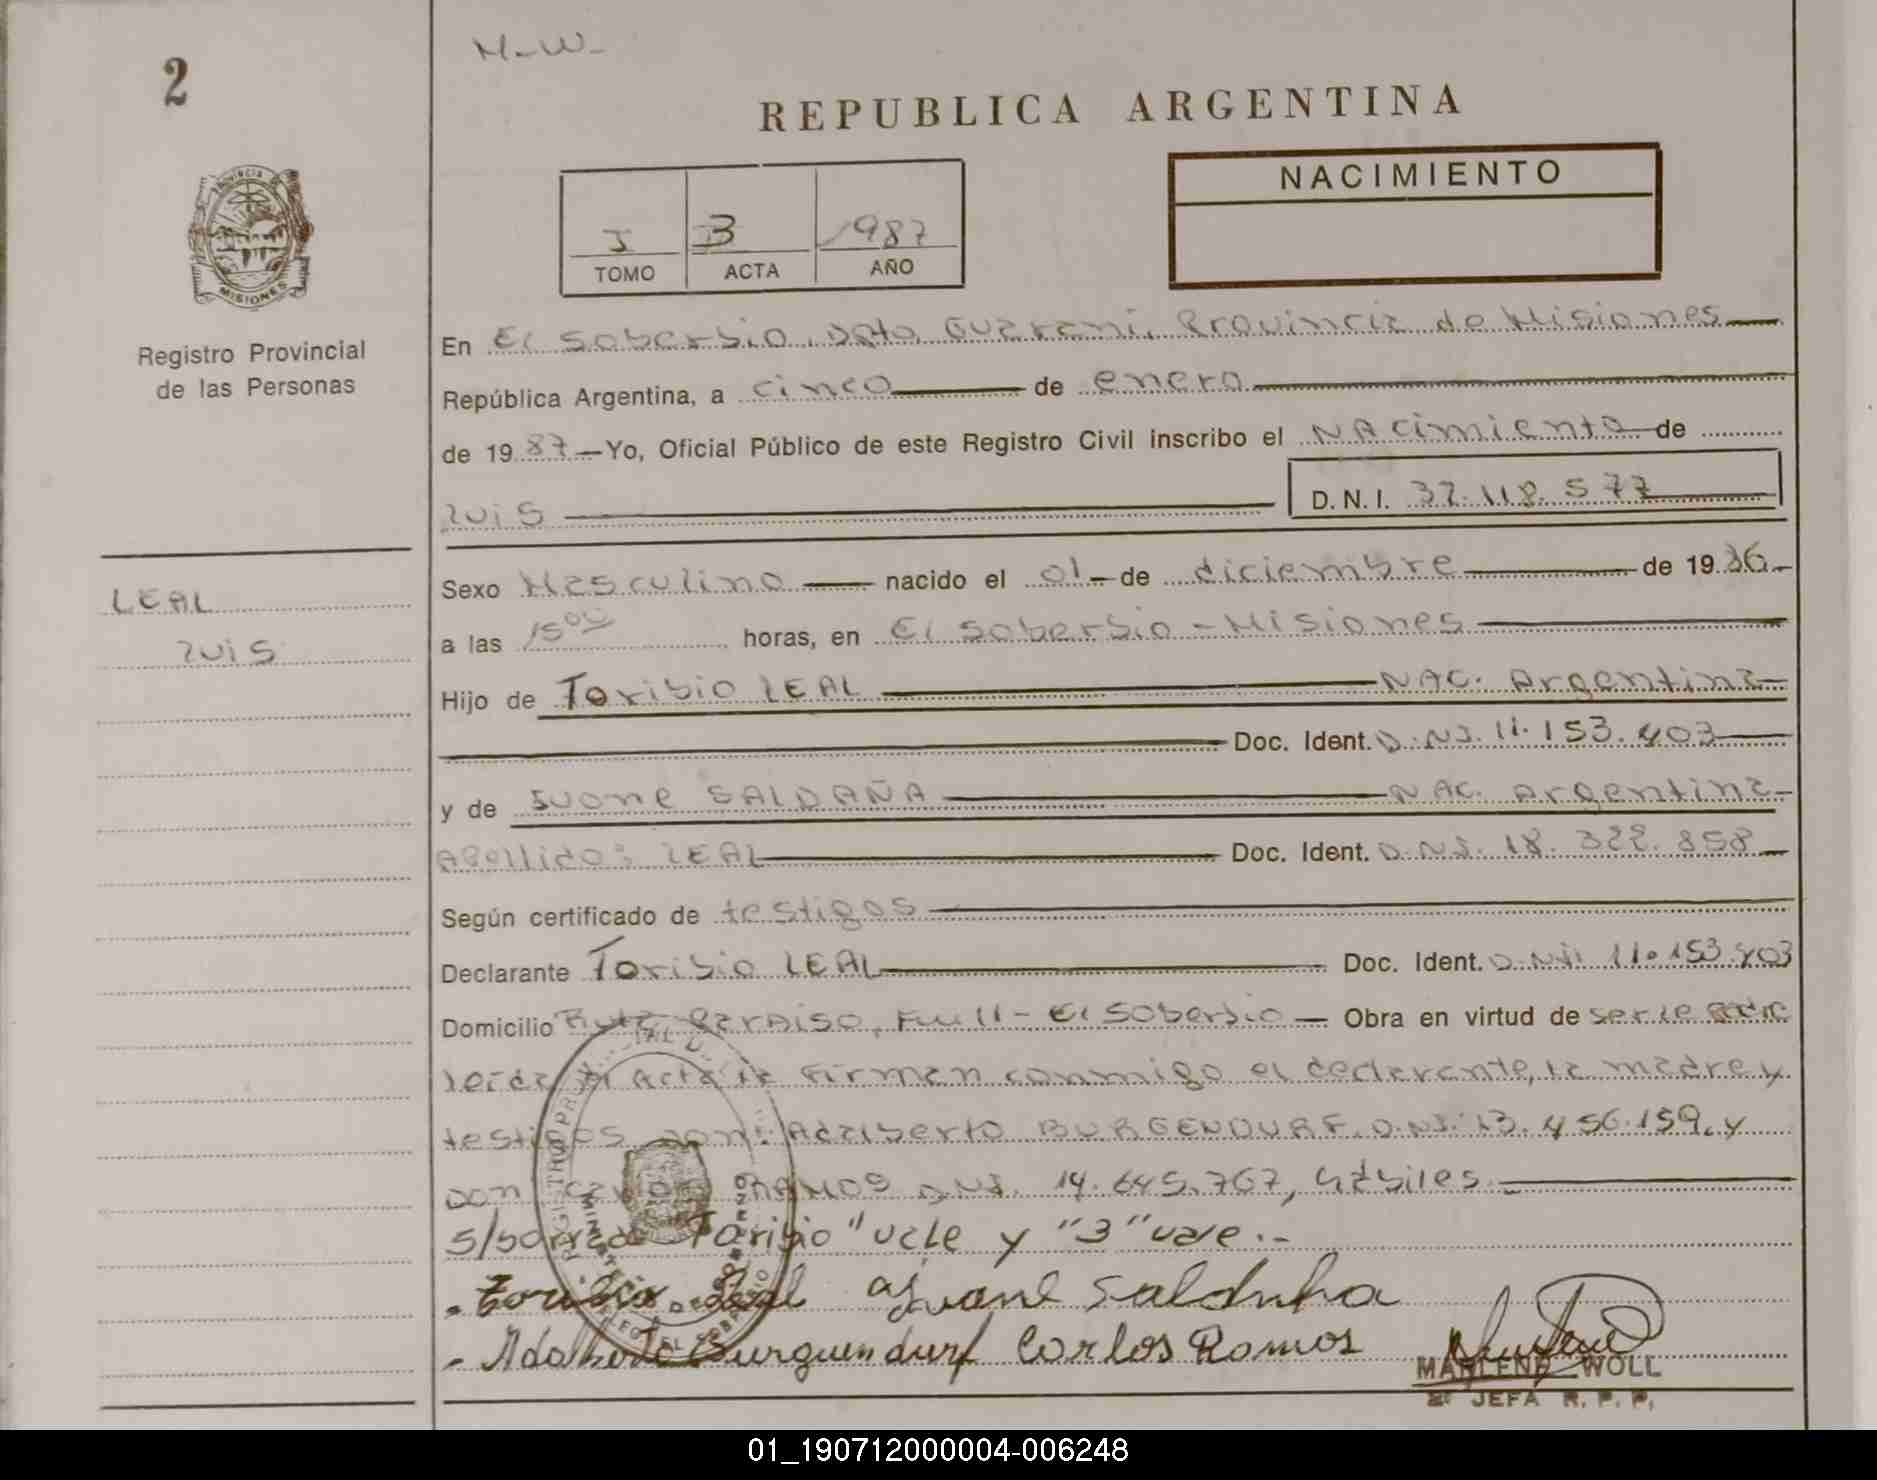 2
M-W-
REPUBLICA ARGENTINA
NACIMIENTO
I 3 1987
TOMO ACTA AÑO
PROVINCIA DE
MISIONES
Registro Provincial
de las Personas
En El Soberbio, Dpto. Guarani, Provincia de Misiones
República Argentina, a cinco de enero
de 1987 - Yo, Oficial Público de este Registro Civil inscribo el NAcimiento de
Luis D.N.I. 32.118.577
LEAL
Luis
Sexo Masculino nacido el 01 - de diciembre de 1986 -
a las 15 00 horas, en El Soberbio - Misiones
Hijo de Toribio LEAL NAC. Argentina
Doc. Ident. D.N.I. 11.153.403
y de Ivone SALDAÑA NAC. Argentina
Apellido: LEAL Doc. Ident. D.N.I. 18.322.858
Según certificado de testigos
Declarante Toribio LEAL Doc. Ident. D.N.I. 11.153.403
Domicilio Ruta Paraiso, Km 11 - El Soberbio - Obra en virtud de ser le padre
leida el Acta la Firman conmigo el declarante, la madre y
testigos don: Adalberto BURGENDURF, D.N.I. 13.456.159, y
Don Carlos RAMOS D.N.I. 14.645.767, hábiles.
S/borrado "Toribio" vale y "3" vale.-
Toribio Leal Ivone Saldnha
Adalberto Burguendurf Carlos Ramos
MARLENE WOLL
JEFA R. P. P.
01_190712000004-006248